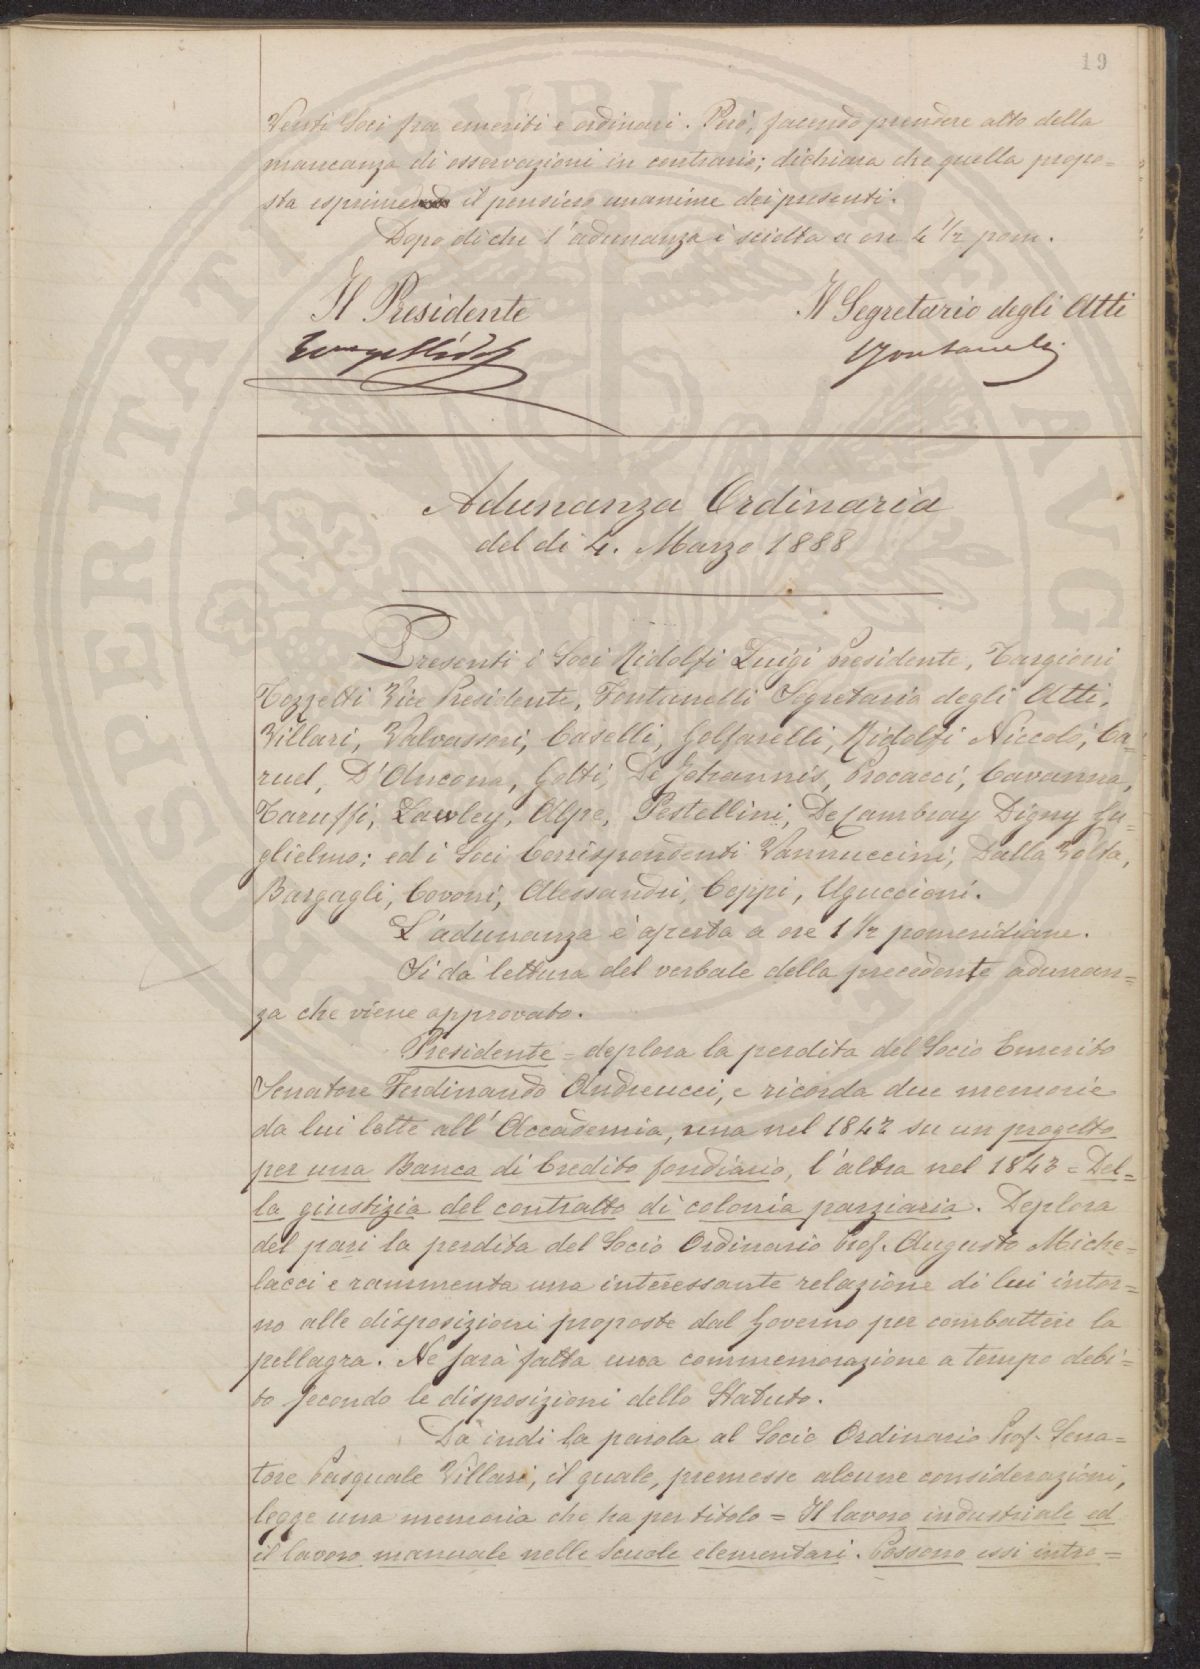 19
Venti Soci fra emeriti e ordinari. Però, facendo prendere atto della
mancanza di osservazioni in contrario; dichiara che quella propo=
sta esprime il pensiero unanime dei presenti.
Dopo di che l'adunanza è sciolta a ore 4 1/2 pom.
Il Presidente
Il Segretario degli Atti
Adunanza Ordinaria
del dì 4. Marzo 1888
Presenti i Soci Ridolfi Luigi Presidente, Targioni
Tozzetti Vice Presidente, Fontanelli Segretario degli Atti,
Villari, Valvassori, Caselli, Golfarelli, Ridolfi Niccolò, Ca=
ruel, D'Ancona, Gotti, De Johannis, Procacci, Cavanna,
Taruffi, Lawley, Alpe, Pestellini, De Cambray Digny Gu=
glielmo; ed i Soci Corrispondenti Vannuccini, Dalla Volta,
Bargagli, Covoni, Alessandri, Ceppi, Uguccioni.
L'adunanza è aperta a ore 1 1/2 pomeridiane.
Si dà lettura del verbale della precedente adunan=
za che viene approvato.
Presidente = deplora la perdita del Socio Emerito
Senatore Ferdinando Andreucci, e ricorda due memorie
da lui lette all'Accademia, una nel 1842 su un progetto
per una Banca di Credito fondiario, l'altra nel 1843 = Del=
la giustizia del contratto di colonia parziaria. Deplora
del pari la perdita del Socio Ordinario Prof. Augusto Miche=
lacci e rammenta una interessante relazione di lui intor=
no alle disposizioni proposte dal Governo per combattere la
pellagra. Ne sarà fatta una commemorazione a tempo debi=
to secondo le disposizioni dello Statuto.
Dà indi la parola al Socio Ordinario Prof. Sena=
tore Pasquale Villari, il quale, premesse alcune considerazioni,
legge una memoria che ha per titolo = Il lavoro industriale ed
il lavoro manuale nelle scuole elementari. Possono essi intro=